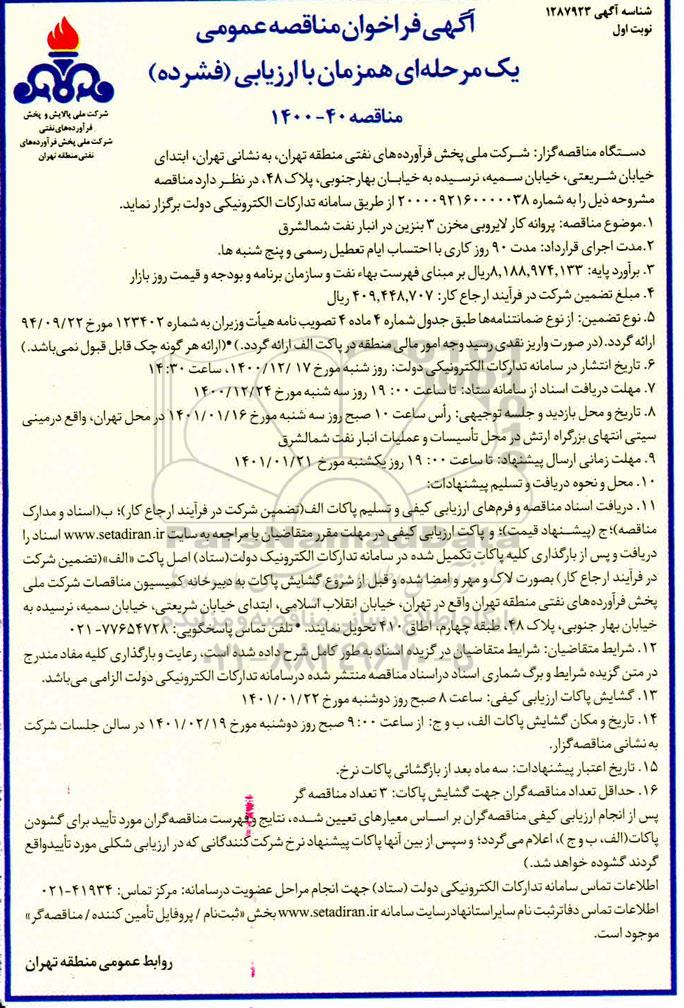 شناسه آگهی ۱۲۸۷۹۲۳
نوبت اول
آگهی فراخوان مناقصه عمومی
یک مرحله‌ای همزمان با ارزیابی (فشرده)
مناقصه ۴۰-۱۴۰۰
شرکت ملی پالایش و پخش
فرآورده‌های نفتی
شرکت ملی پخش فرآورده‌های
نفتی منطقه تهران
دستگاه مناقصه‌گزار: شرکت ملی پخش فرآورده‌های نفتی منطقه تهران، به نشانی تهران، ابتدای
خیابان شریعتی، خیابان سمیه، نرسیده به خیابان بهار جنوبی، پلاک ۴۸، در نظر دارد مناقصه
مشروحه ذیل را به شماره ۲۰۰۰۰۹۲۱۶۰۰۰۰۰۳۸ از طریق سامانه تدارکات الکترونیکی دولت برگزار نماید.
۱.موضوع مناقصه: پروانه کار لایروبی مخزن ۳ بنزین در انبار نفت شمالشرق
۲.مدت اجرای قرارداد: مدت ۹۰ روز کاری با احتساب ایام تعطیل رسمی و پنج شنبه ها.
۳. برآورد پایه: ۸,۱۸۸,۹۷۴,۱۳۳ریال بر مبنای فهرست بهاء نفت و سازمان برنامه و بودجه و قیمت روز بازار
۴. مبلغ تضمین شرکت در فرآیند ارجاع کار: ۴۰۹,۴۴۸,۷۰۷ ریال
۵. نوع تضمین: از نوع ضمانتنامه‌ها طبق جدول شماره ۴ ماده ۴ تصویب نامه هیأت وزیران به شماره ۱۲۳۴۰۲ مورخ ۹۴/۰۹/۲۲
ارائه گردد.(در صورت واریز نقدی رسید وجه امور مالی منطقه در پاکت الف ارائه گردد.)•(ارائه هر گونه چک قابل قبول نمی‌باشد.)
۶. تاریخ انتشار در سامانه تدارکات الکترونیکی دولت: روز شنبه مورخ ۱۴۰۰/۱۲/۱۷، ساعت ۱۴:۳۰
۷. مهلت دریافت اسناد از سامانه ستاد: تا ساعت ۱۹:۰۰ روز سه شنبه مورخ ۱۴۰۰/۱۲/۲۴
۸. تاریخ و محل بازدید و جلسه توجیهی: رأس ساعت ۱۰ صبح روز سه شنبه مورخ ۱۴۰۱/۰۱/۱۶ در محل تهران، واقع درمینی
سیتی انتهای بزرگراه ارتش در محل تأسیسات و عملیات انبار نفت شمالشرق
۹. مهلت زمانی ارسال پیشنهاد: تا ساعت ۱۹:۰۰ روز یکشنبه مورخ ۱۴۰۱/۰۱/۲۱
۱۰. محل و نحوه دریافت و تسلیم پیشنهادات:
۱۱. دریافت اسناد مناقصه و فرم‌های ارزیابی کیفی و تسلیم پاکات الف(تضمین شرکت در فرآیند ارجاع کار)؛ ب(اسناد و مدارک
مناقصه)؛ج (پیشنهاد قیمت)؛ و پاکت ارزیابی کیفی در مهلت مقرر متقاضیان با مراجعه به سایت www.setadiran.ir اسناد را
دریافت و پس از بارگذاری کلیه پاکات تکمیل شده در سامانه تدارکات الکترونیک دولت(ستاد) اصل پاکت «الف»(تضمین شرکت
در فرآیند ارجاع کار) بصورت لاک و مهر و امضا شده و قبل از شروع گشایش پاکات به دبیرخانه کمیسیون مناقصات شرکت ملی
پخش فرآورده‌های نفتی منطقه تهران واقع در تهران، خیابان انقلاب اسلامی، ابتدای خیابان شریعتی، خیابان سمیه، نرسیده به
خیابان بهار جنوبی، پلاک ۴۸، طبقه چهارم، اطاق ۴۱۰ تحویل نمایند. • تلفن تماس پاسخگویی: ۷۷۶۵۴۷۲۸-۰۲۱
۱۲. شرایط متقاضیان: شرایط متقاضیان در گزیده اسناد به طور کامل شرح داده شده است، رعایت و بارگذاری کلیه مفاد مندرج
در متن گزیده شرایط و برگ شماری اسناد دراسناد مناقصه منتشر شده درسامانه تدارکات الکترونیکی دولت الزامی می‌باشد.
۱۳. گشایش پاکات ارزیابی کیفی: ساعت ۸ صبح روز دوشنبه مورخ ۱۴۰۱/۰۱/۲۲
۱۴. تاریخ و مکان گشایش پاکات الف، ب و ج: از ساعت ۹:۰۰ صبح روز دوشنبه مورخ ۱۴۰۱/۰۲/۱۹ در سالن جلسات شرکت
به نشانی مناقصه‌گزار.
۱۵. تاریخ اعتبار پیشنهادات: سه ماه بعد از بازگشائی پاکات نرخ.
۱۶. حداقل تعداد مناقصه‌گران جهت گشایش پاکات: ۳ تعداد مناقصه گر
پس از انجام ارزیابی کیفی مناقصه‌گران بر اساس معیارهای تعیین شده، نتایج و فهرست مناقصه‌گران مورد تأیید برای گشودن
پاکات(الف، ب و ج)، اعلام می‌گردد؛ و سپس از بین آنها پاکات پیشنهاد نرخ شرکت‌کنندگانی که در ارزیابی شکلی مورد تأییدواقع
گردند گشوده خواهد شد.)
اطلاعات تماس سامانه تدارکات الکترونیکی دولت (ستاد) جهت انجام مراحل عضویت درسامانه: مرکز تماس: ۴۱۹۳۴-۰۲۱
اطلاعات تماس دفاترثبت نام سایراستانهادرسایت سامانه www.setadiran.ir بخش «ثبت‌نام / پروفایل تأمین کننده / مناقصه‌گر»
موجود است.
روابط عمومی منطقه تهران